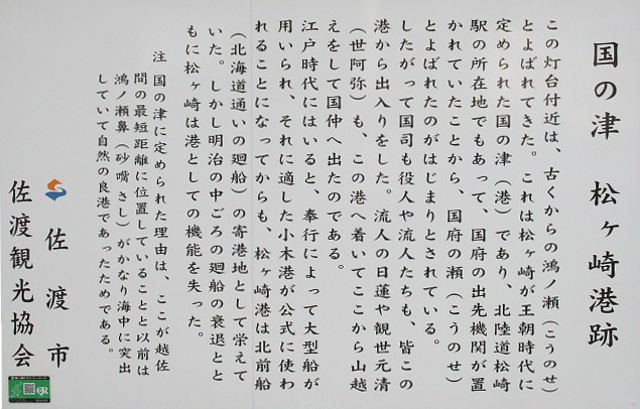 国の津　松ヶ崎港跡
この灯台付近は、古くからの鴻ノ瀬（こうのせ）
とよばれてきた。これは松ヶ崎が王朝時代に
定められた国の津（港）であり、北陸道松崎
駅の所在地でもあって、国府の出先機関が置
かれていたことから、国府の瀬（こうのせ）
とよばれたのがはじまりとされている。
したがって国司も役人や流人たちも、皆この
港から出入りをした。流人の日蓮や観世元清
（世阿弥）も、この港へ着いてここから山越
えをして国仲へ出たのである。
江戸時代にはいると、奉行によって大型船が
用いられ、それに適した小木港が公式に使わ
れることになってからも、松ヶ崎港は北前船
（北海道通いの廻船）の寄港地として栄えて
いた。しかし明治の中ごろの廻船の衰退とと
もに松ヶ崎は港としての機能を失った。
注　国の津に定められた理由は、ここが越佐
間の最短距離に位置していることと以前は
鴻ノ瀬鼻（砂嘴さし）がかなり海中に突出
していて自然の良港であったためである。
佐渡市
佐渡観光協会